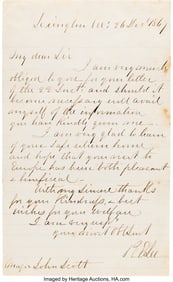 Lexington Va: 26 Dec 1867
My dear Sir
I am very much
obliged to you for your letter
of the 22 Inst: and should it
become necessary will avail
myself of the information
you have kindly given me.
I am very glad to learn
of your safe return home
and hope that your visit to
Europe has been both pleasant
& beneficial.
With my sincere thanks
for your kindness, & best
wishes for your welfare
I am very resp
your obt Servt
R E Lee
Major John Scott
Image by Heritage Auctions, HA.com